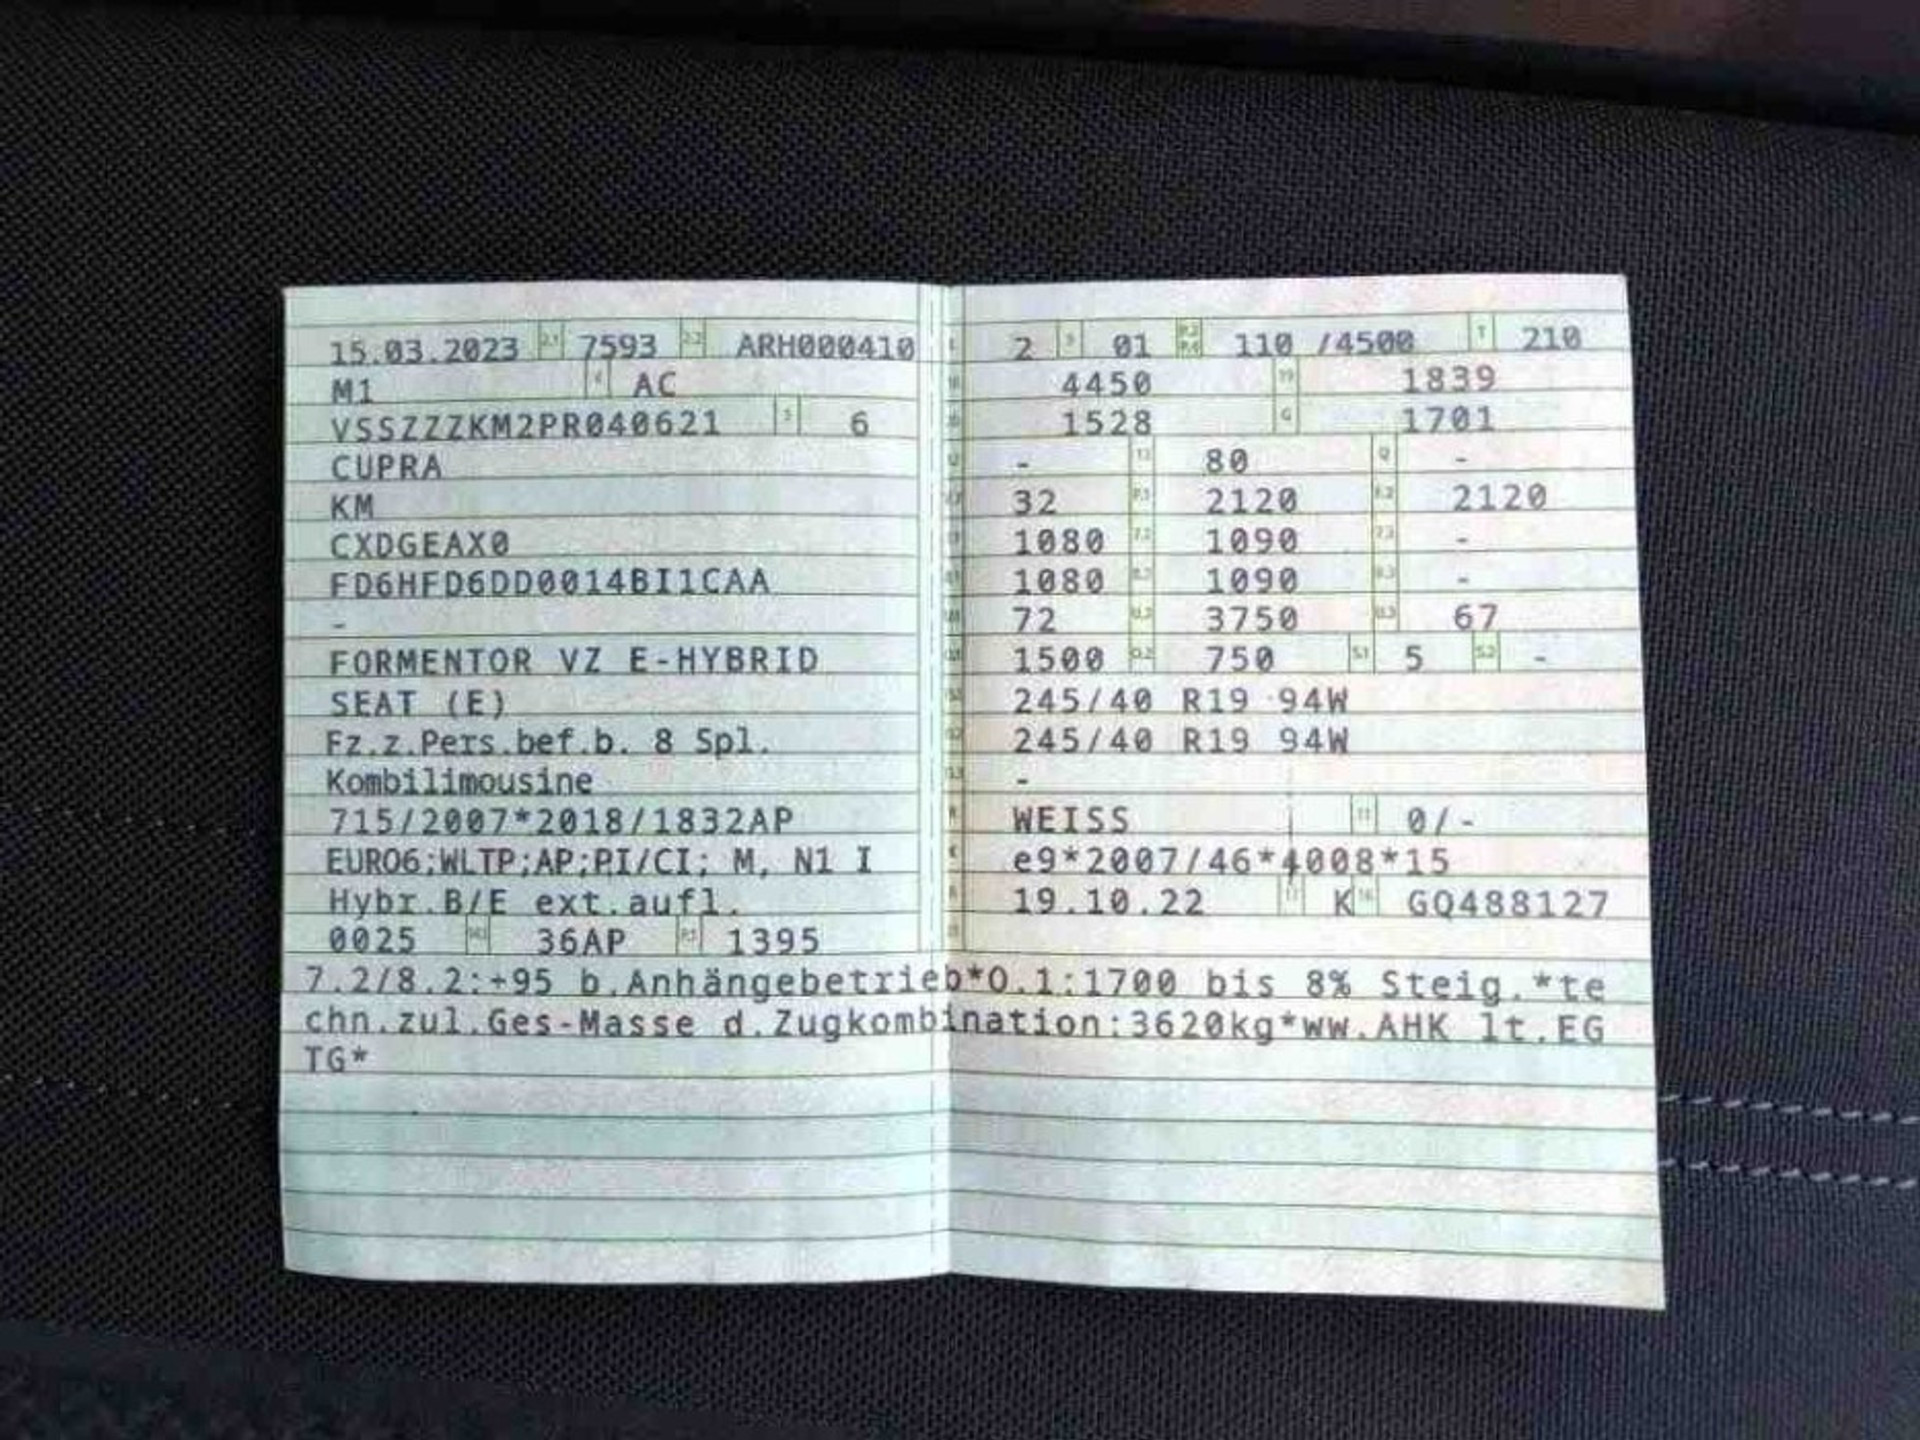 15.03.2023 2.1 7593 2.2 ARH000410
M1 4 AC
VSSZZZKM2PR040621 3 6
CUPRA
KM
CXDGEAX0
FD6HFD6DD0014BI1CAA
-
FORMENTOR VZ E-HYBRID
SEAT (E)
Fz.z.Pers.bef.b. 8 Spl.
Kombilimousine
715/2007*2018/1832AP
EURO6;WLTP;AP;PI/CI; M, N1 I
Hybr.B/E ext.aufl.
0025 14.1 36AP P.3 1395
L 2 9 01 P.2 P.4 110 /4500 T 210
18 4450 19 1839
20 1528 G 1701
12 - 13 80 Q -
32 F.1 2120 F.2 2120
1080 7.2 1090 7.3 -
1080 8.2 1090 8.3 -
72 U.2 3750 U.3 67
1500 O.2 750 S.1 5 S.2 -
245/40 R19 94W
245/40 R19 94W
-
R WEISS 11 0/-
K e9*2007/46*4008*15
6 19.10.22 17 K 16 GQ488127
7.2/8.2:+95 b.Anhängebetrieb*O.1:1700 bis 8% Steig.*te
chn.zul.Ges-Masse d.Zugkombination:3620kg*ww.AHK lt.EG
TG*